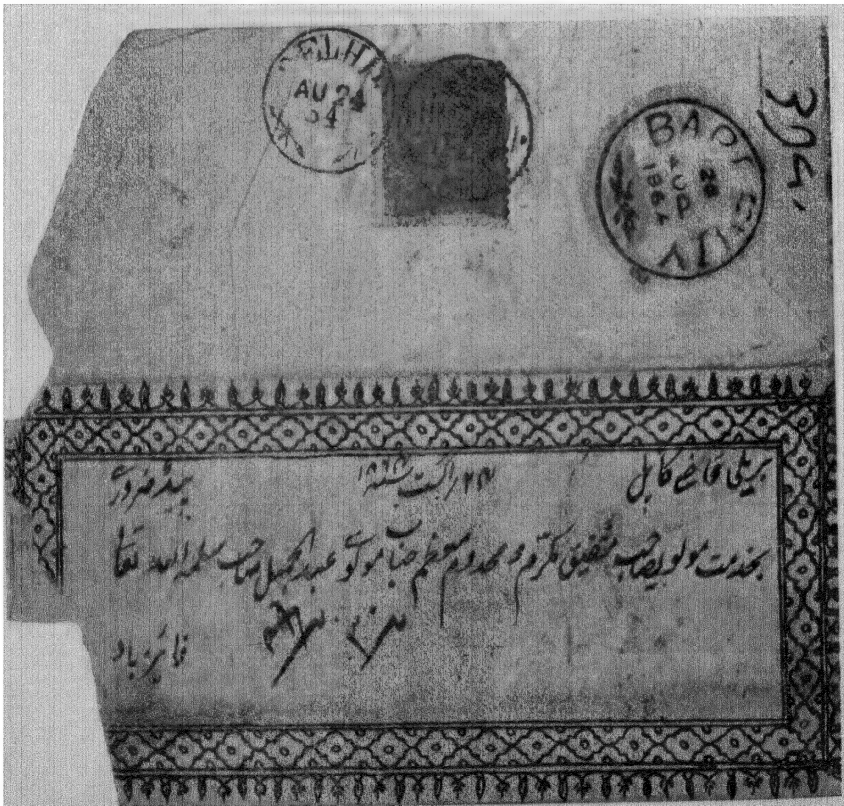 DELHI
AU 24
64
BAREILLY
28
AUG
1864
بریلی ۲۴ اگست ۱۸۶۴ پیڈ ضروری
بخدمت مولویصاحب مشفق مکرم و مخدوم معظم جناب مولوی عبد الجمیل صاحب سلمہ اللہ تعالی
فائز باد